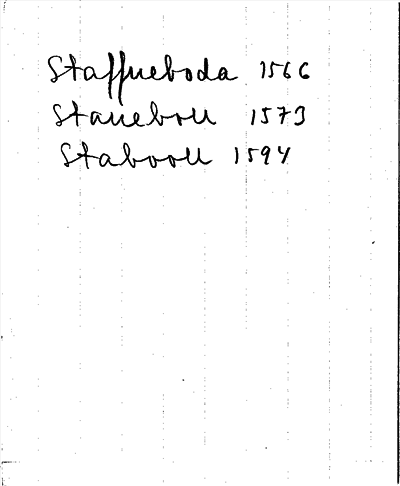 Staffueboda 1566
Staueboll 1573
Stabooll 1594